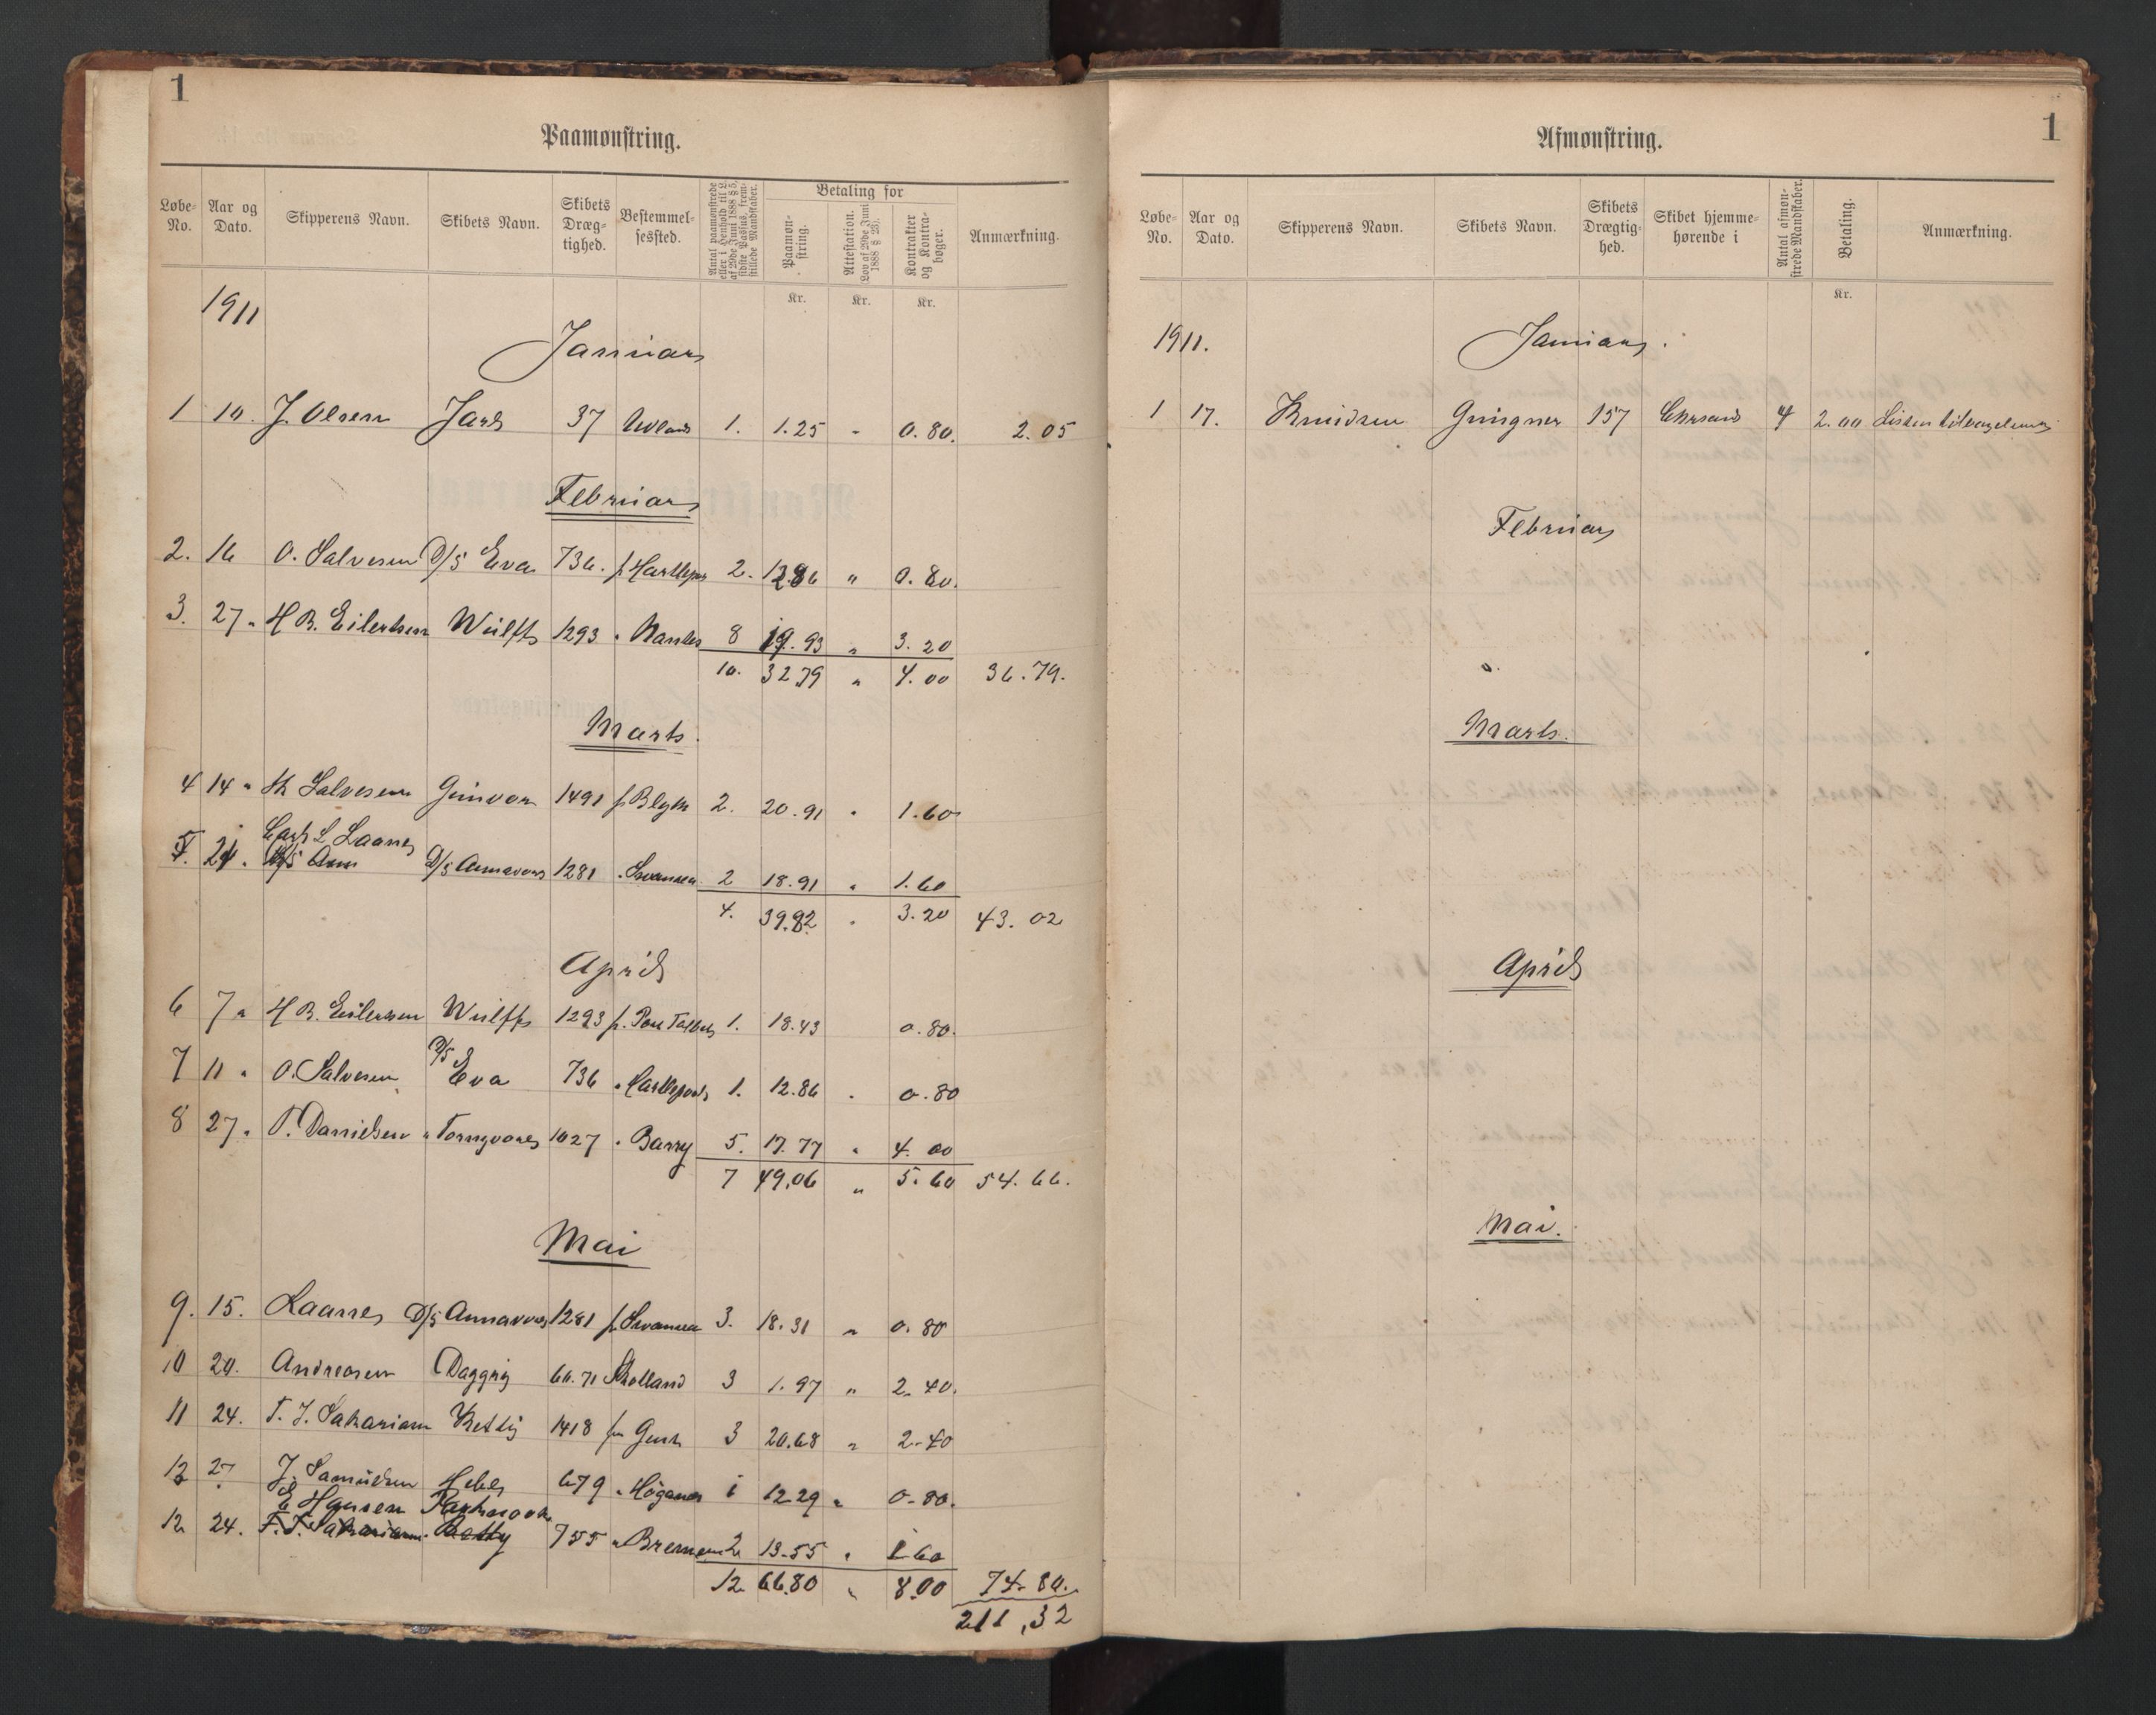 1
Paamønstring.
Løbe-No. Aar og Dato. Skipperens Navn. Skibets Navn. Skibets Dræg-tighed. Bestemmel-sessted. Antal paamønstrede eller i Henhold til L. af 29de Juni 1888 § 5, sidste Passus, frem-stillede Mandskaber. Betaling for Paamøn-string. Attestation. Lov af 29de Juni 1888 § 23). Kontrakter og Kontra-bøger. Anmærkning.
Kr. Kr. Kr.
1911
Januar
1 10. J. Olsen Jarl 37 1. 1.25 " 0.80. 2.05
Februar
2. 16 O. Salvesen D/S Eva 736. f. Hartlepool 2. 12.86 " 0.80.
3. 27 " H B. Eilertsen Wulff 1293 " Nantes 8 19.93 " 3.20
10. 32.79 " 4.00 36.79.
Marts.
4 14 " Salvesen Gunvor 1491 f Blyth 2. 20.91 " 1.60
Capt L Laanes
5. 24 " D/S Ann D/S Annavore 1281 " Swansea 2 18.91 " 1.60
4. 39.82 " 3.20 43.02
April
6 7 " H B. Eilertsen Wulff 1293 f. Port Talbot 1. 18.43 0.80.
7 11 " O. Salvesen D/S Eva 736 " Hartlepool 1. 12.86 " 0.80
8 27 " T. Danielsen " 1027 " Barry 5. 17.77 " 4.00
7 49.06 " 5.60 54.66.
Mai
9. 15. Laanes D/S Annavore 1281 f Swansea 3. 18.31 " 0.80
10 20. Andreasen Daggry 60.71 Holland 3 1.97 " 2.40.
11 24. T. J. Sakariasen Betty 1418 f Gent 3 20.68 " 2.40
12 27 J. Samuelsen Hebe 679 " Höganes 1 12.29 " 0.80.
E Hansen
12 24. T. J. Sakariasen Betty 755 " Bremen 2 13.55 " 1.60
12 66.80 " 8.00 74.80.
211,32
1
Afmønstring.
Løbe-No. Aar og Dato. Skipperens Navn. Skibets Navn. Skibets Drægtig-hed. Skibet hjemme-hørende i Antal afmøn-strede Mandskaber. Betaling. Anmærkning.
Kr.
1911.
Januar.
1 17. Knudsen Gungner 157 Chrsand 4 2.00
Februar
Marts.
April
Mai.